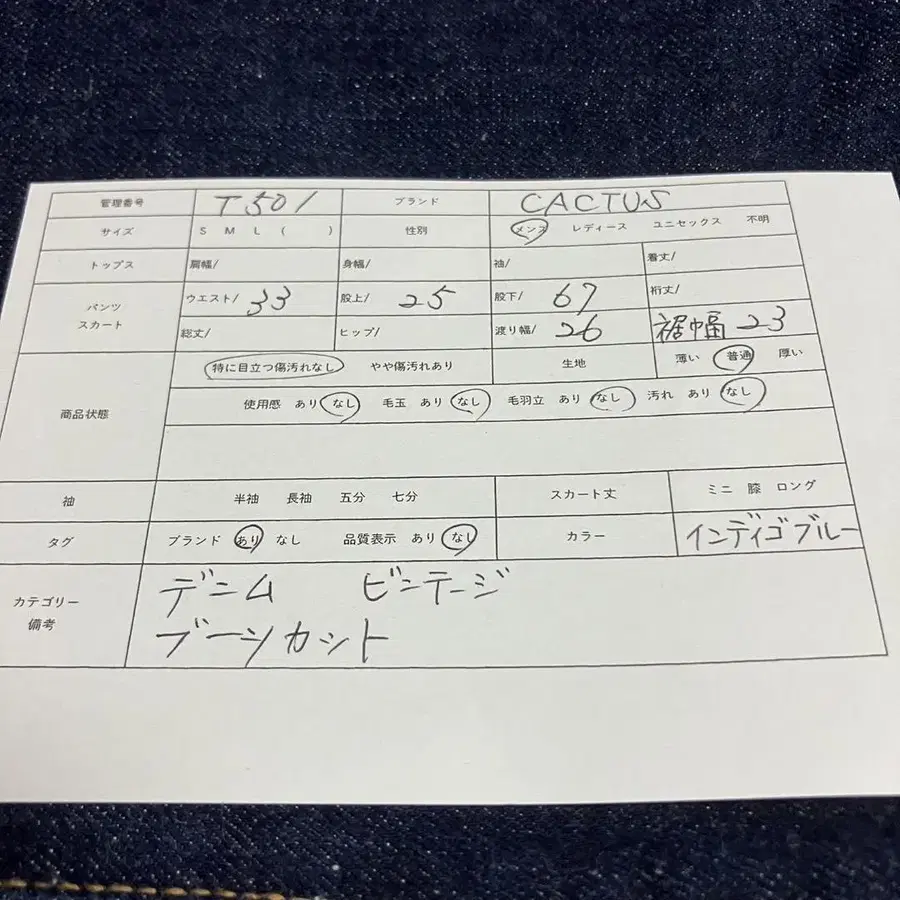 管理番号 T501 ブランド CACTUS
サイズ S M L ( ) 性別 メンズ レディース ユニセックス 不明
トップス 肩幅/ 身幅/ 袖/ 着丈/
パンツ スカート ウエスト/ 33 股上/ 25 股下/ 67 裄丈/
総丈/ ヒップ/ 渡り幅/ 26 裾幅 23
特に目立つ傷汚れなし やや傷汚れあり 生地 薄い 普通 厚い
商品状態 使用感 あり なし 毛玉 あり なし 毛羽立 あり なし 汚れ あり なし
袖 半袖 長袖 五分 七分 スカート丈 ミニ 膝 ロング
タグ ブランド あり なし 品質表示 あり なし カラー インディゴブルー
カテゴリー 備考 デニム ビンテージ
ブーツカット